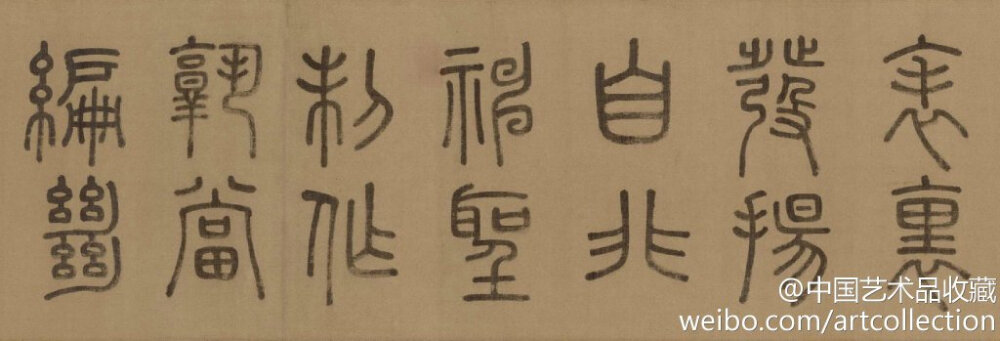 表裏
發揚
自非
神聖
制作
孰當
編
@中国艺术品收藏
weibo.com/artcollection